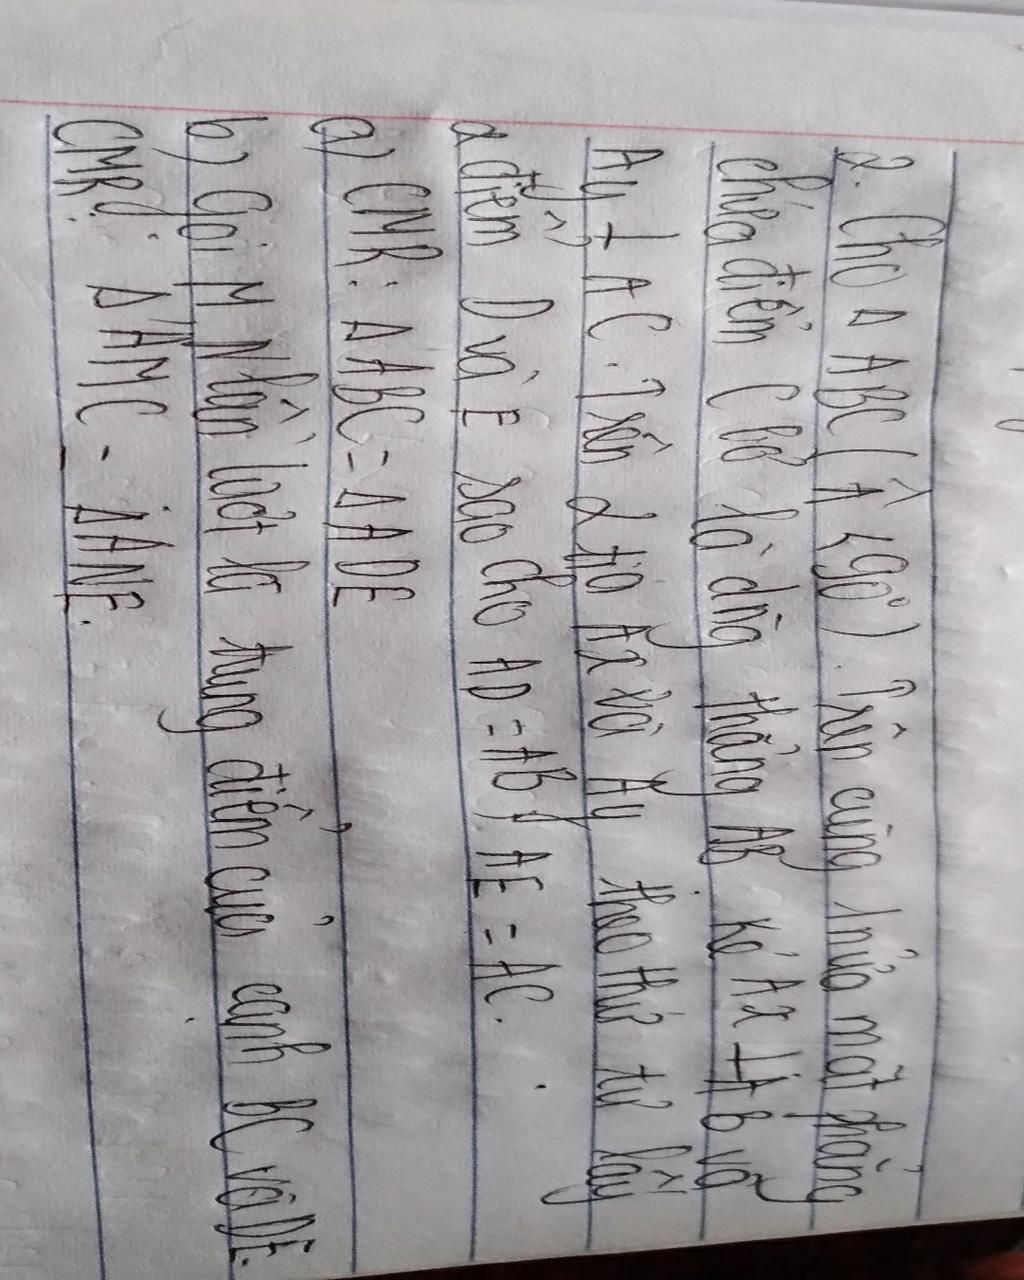 2. Cho Δ ABC (Â < 90°). Trên cùng 1 nửa mặt phẳng
chứa điểm C bờ là đng thẳng AB. Kẻ Ax ⊥ AB và
Ay ⊥ AC. Trên 2 tia Ax và Ay theo thứ tự lấy
2 điểm D và E sao cho AD = AB, AE = AC.
a) CMR: Δ ABC = Δ ADE
b) Gọi M, N lần lượt là trung điểm của cạnh BC và DE.
CMR: Δ AMC = Δ ANE.